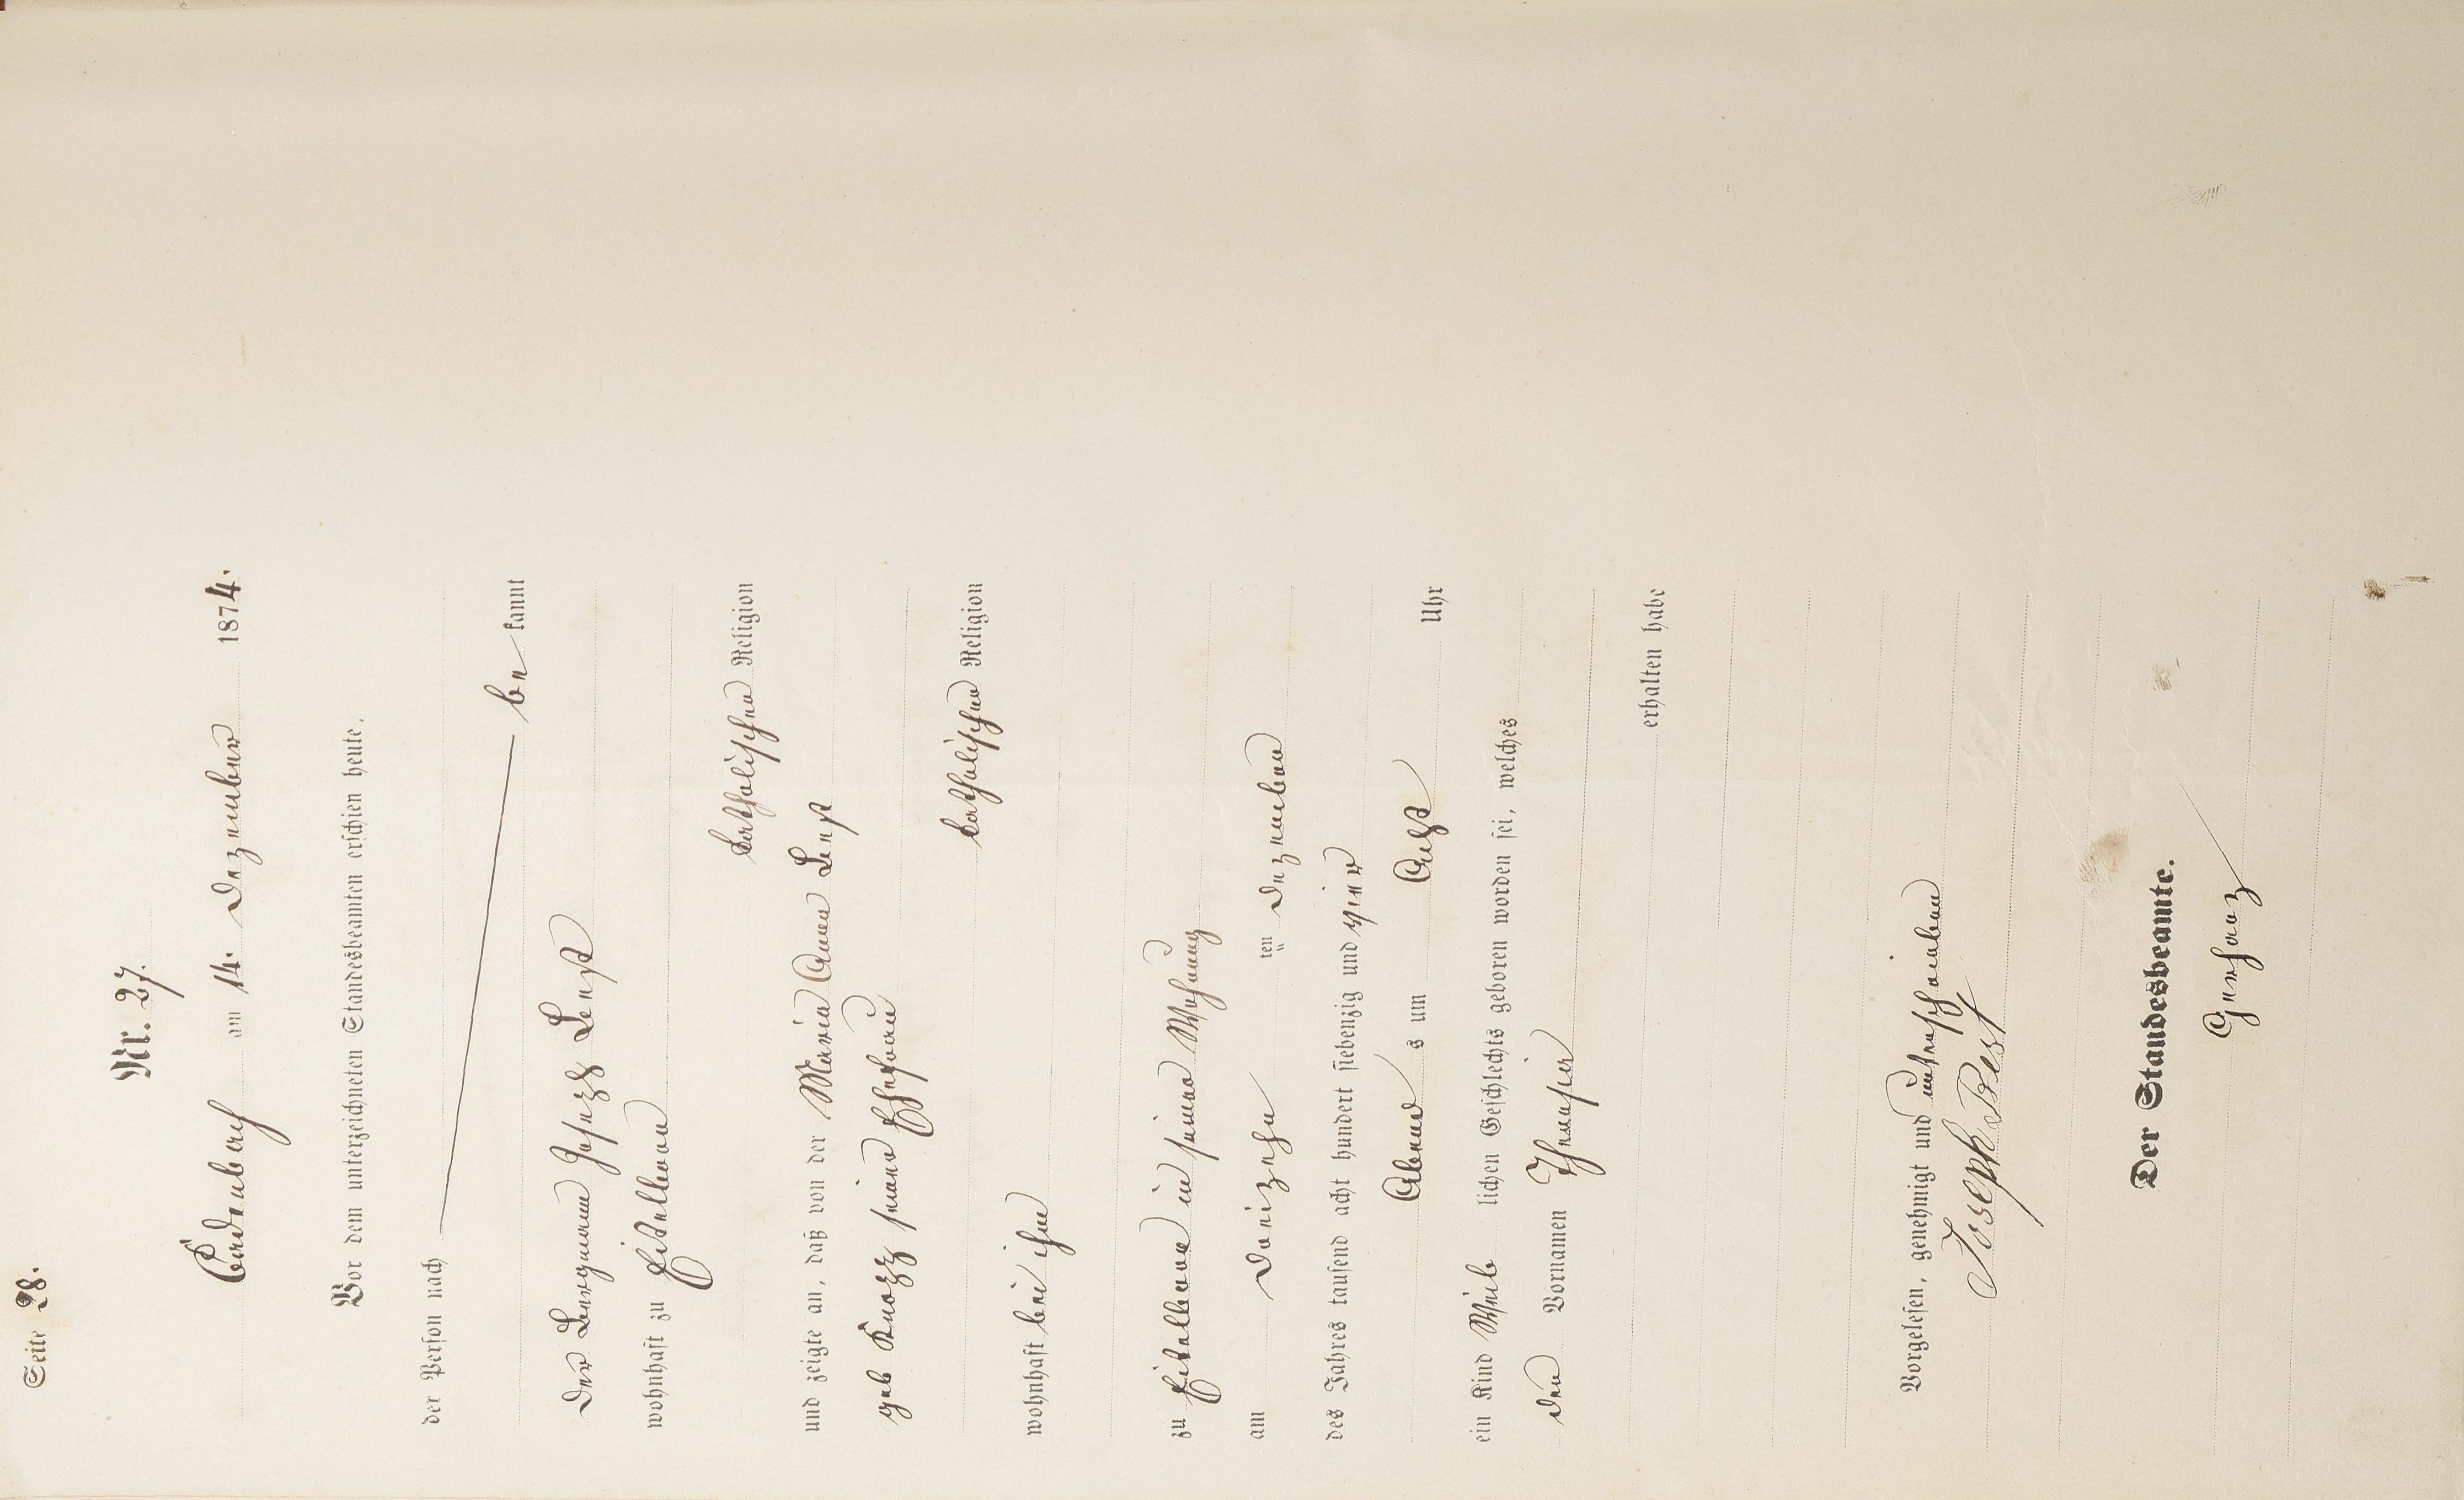 Seite 28.
Nr. 27.
Cardenbach am 14. Dezember 1874.
Vor dem unterzeichneten Standesbeamten erschien heute,
der Person nach
be kannt
der Bergmann Josepf Best
wohnhaft zu Eitelborn
katholischer Religion
und zeigte an, daß von der Maria Anna Best
geb Knopp seiner Ehefrau
katholischer Religion
wohnhaft bei ihm
zu Eitelborn in seiner Wohnung
am Dreizehn ten Dezember
des Jahres tausend acht hundert siebenzig und vier
Abend s um Acht Uhr
ein Kind Weib lichen Geschlechts geboren worden sei, welches
den Vornamen Theresia
erhalten habe
Vorgelesen, genehmigt und unterschrieben
Joseph Best
Der Standesbeamte.